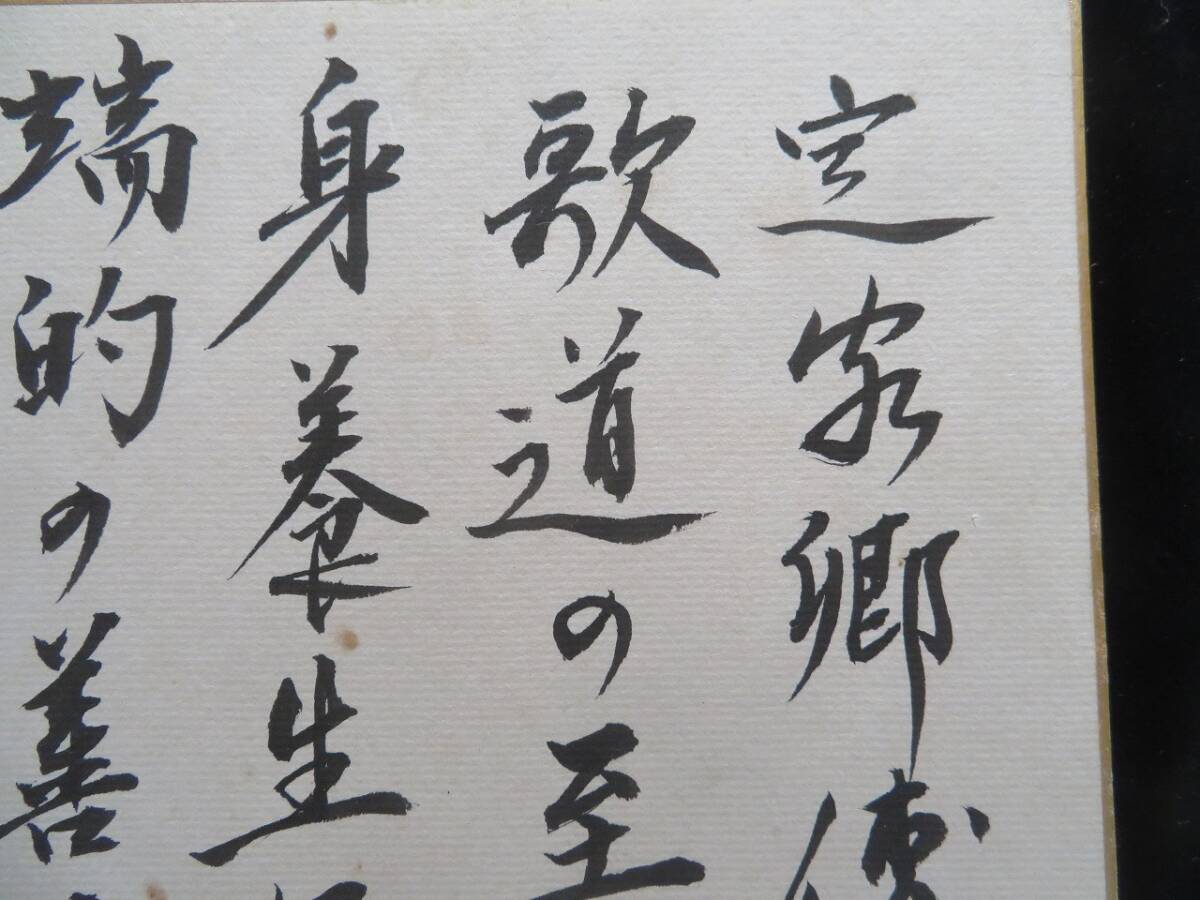 定家卿傳
歌道の至
身養生
端的の善